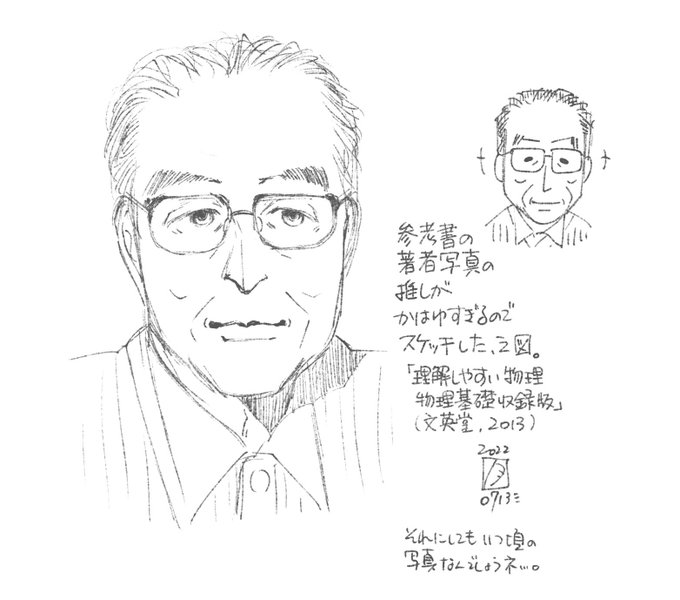 参考書の
著者写真の
推しが
かはゆすぎるので
スケッチした、之図。
「理解しやすい物理
物理基礎収録版」
(文英堂, 2013)
2022
0713ミ
それにしてもいつ頃の
写真なんでしょうネ…。